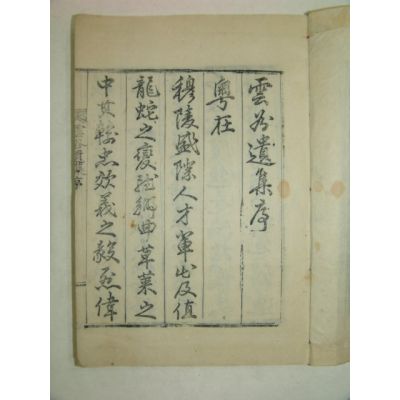 雲遺集序
粤在
穆陵盛際人才輩出及値
龍蛇之變草萊之
中其輸忠效義之毅然偉